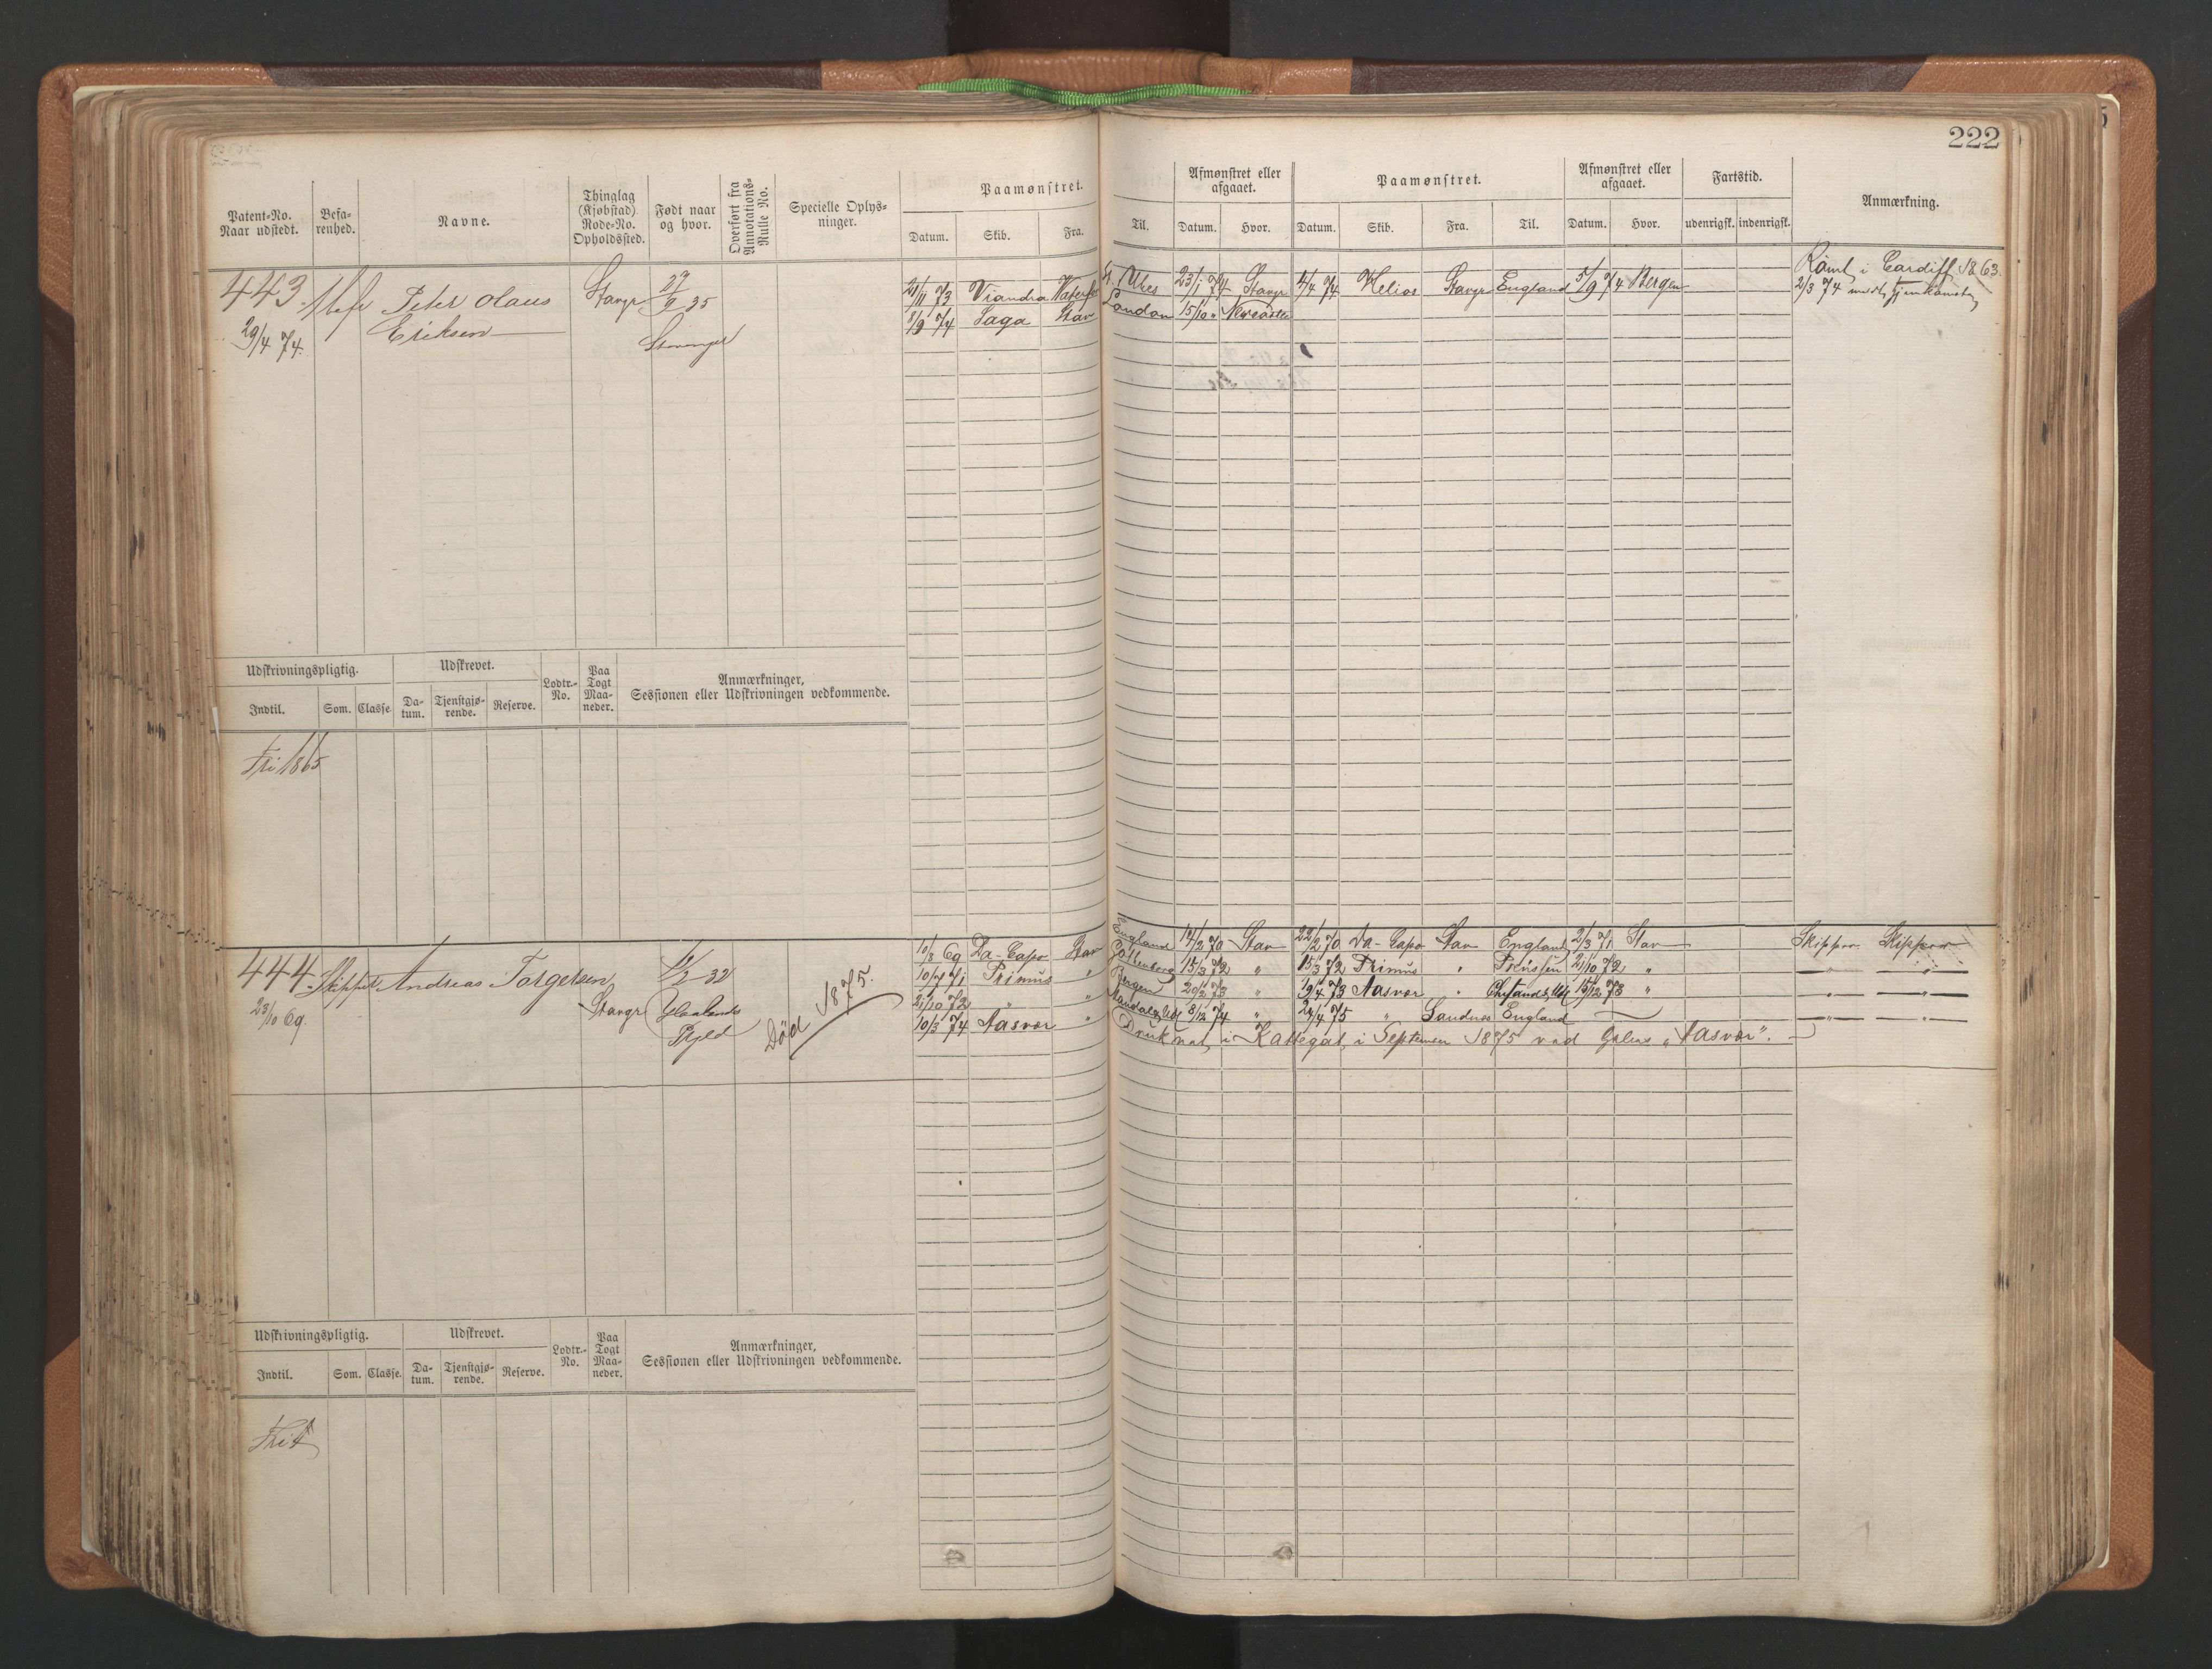 222
Patent-No. Naar udstedt.
Befa-renhed.
Navne.
Thinglag (Kjøbstad) Rode-No. Opholdssted.
Født naar og hvor.
Overført fra Annotations-Rulle No.
Specielle Oplys-ninger.
Paamønstret.
Datum. Skib. Fra. Til.
Afmønstret eller afgaaet.
Datum. Hvor.
Paamønstret.
Datum. Skib. Fra. Til.
Afmønstret eller afgaaet.
Datum. Hvor.
Fartstid.
udenrigsk. indenrigsk.
Anmærkning.
443
29/4 74.
Peter Olaus
Eriksen
Stavgr
35
Stavanger
21/11 73 Viandra
8/9 74 Saga Stav
23/1 74 Stavgr 4/4 74 Helios Stavgr England 5/9 74 Bergen
London 15/10 "
Rømt i Cardiff 1863.
2/3 74
Udskrivningspligtig.
Udskrevet.
Lodtr.-No.
Paa Togt Maa-neder.
Anmærkninger,
Sessionen eller Udskrivningen vedkommende.
Indtil. Som. Classe. Da-tum. Tjenstgjø-rende. Reserve.
Fri 1865
444 Skipper Andreas Torgersen
23/10 69.
Stavgr
Død 1875.
10/8 69 Da-Capo Stav
10/7 71 Primus "
21/10 72 " "
10/3 74 Aasvær "
England 14/2 70 Stav 22/2 70 Da-Capo Stav England 2/3 71 Stav Skipper Skipper
Gothenborg 15/3 72 " 15/3 72 Primus " Preussen 21/10 72 " —"— —"—
Bergen 20/3 73 " 19/4 73 Aasvær " 15/12 73 " —"— —"—
8/12 74 " 24/4 75 " Sandnes England —"— —"—
Druknet i Kattegat i September 1875 ved Galeas "Aasvær".
Udskrivningspligtig.
Udskrevet.
Lodtr.-No.
Paa Togt Maa-neder.
Anmærkninger,
Sessionen eller Udskrivningen vedkommende.
Indtil. Som. Classe. Da-tum. Tjenstgjø-rende. Reserve.